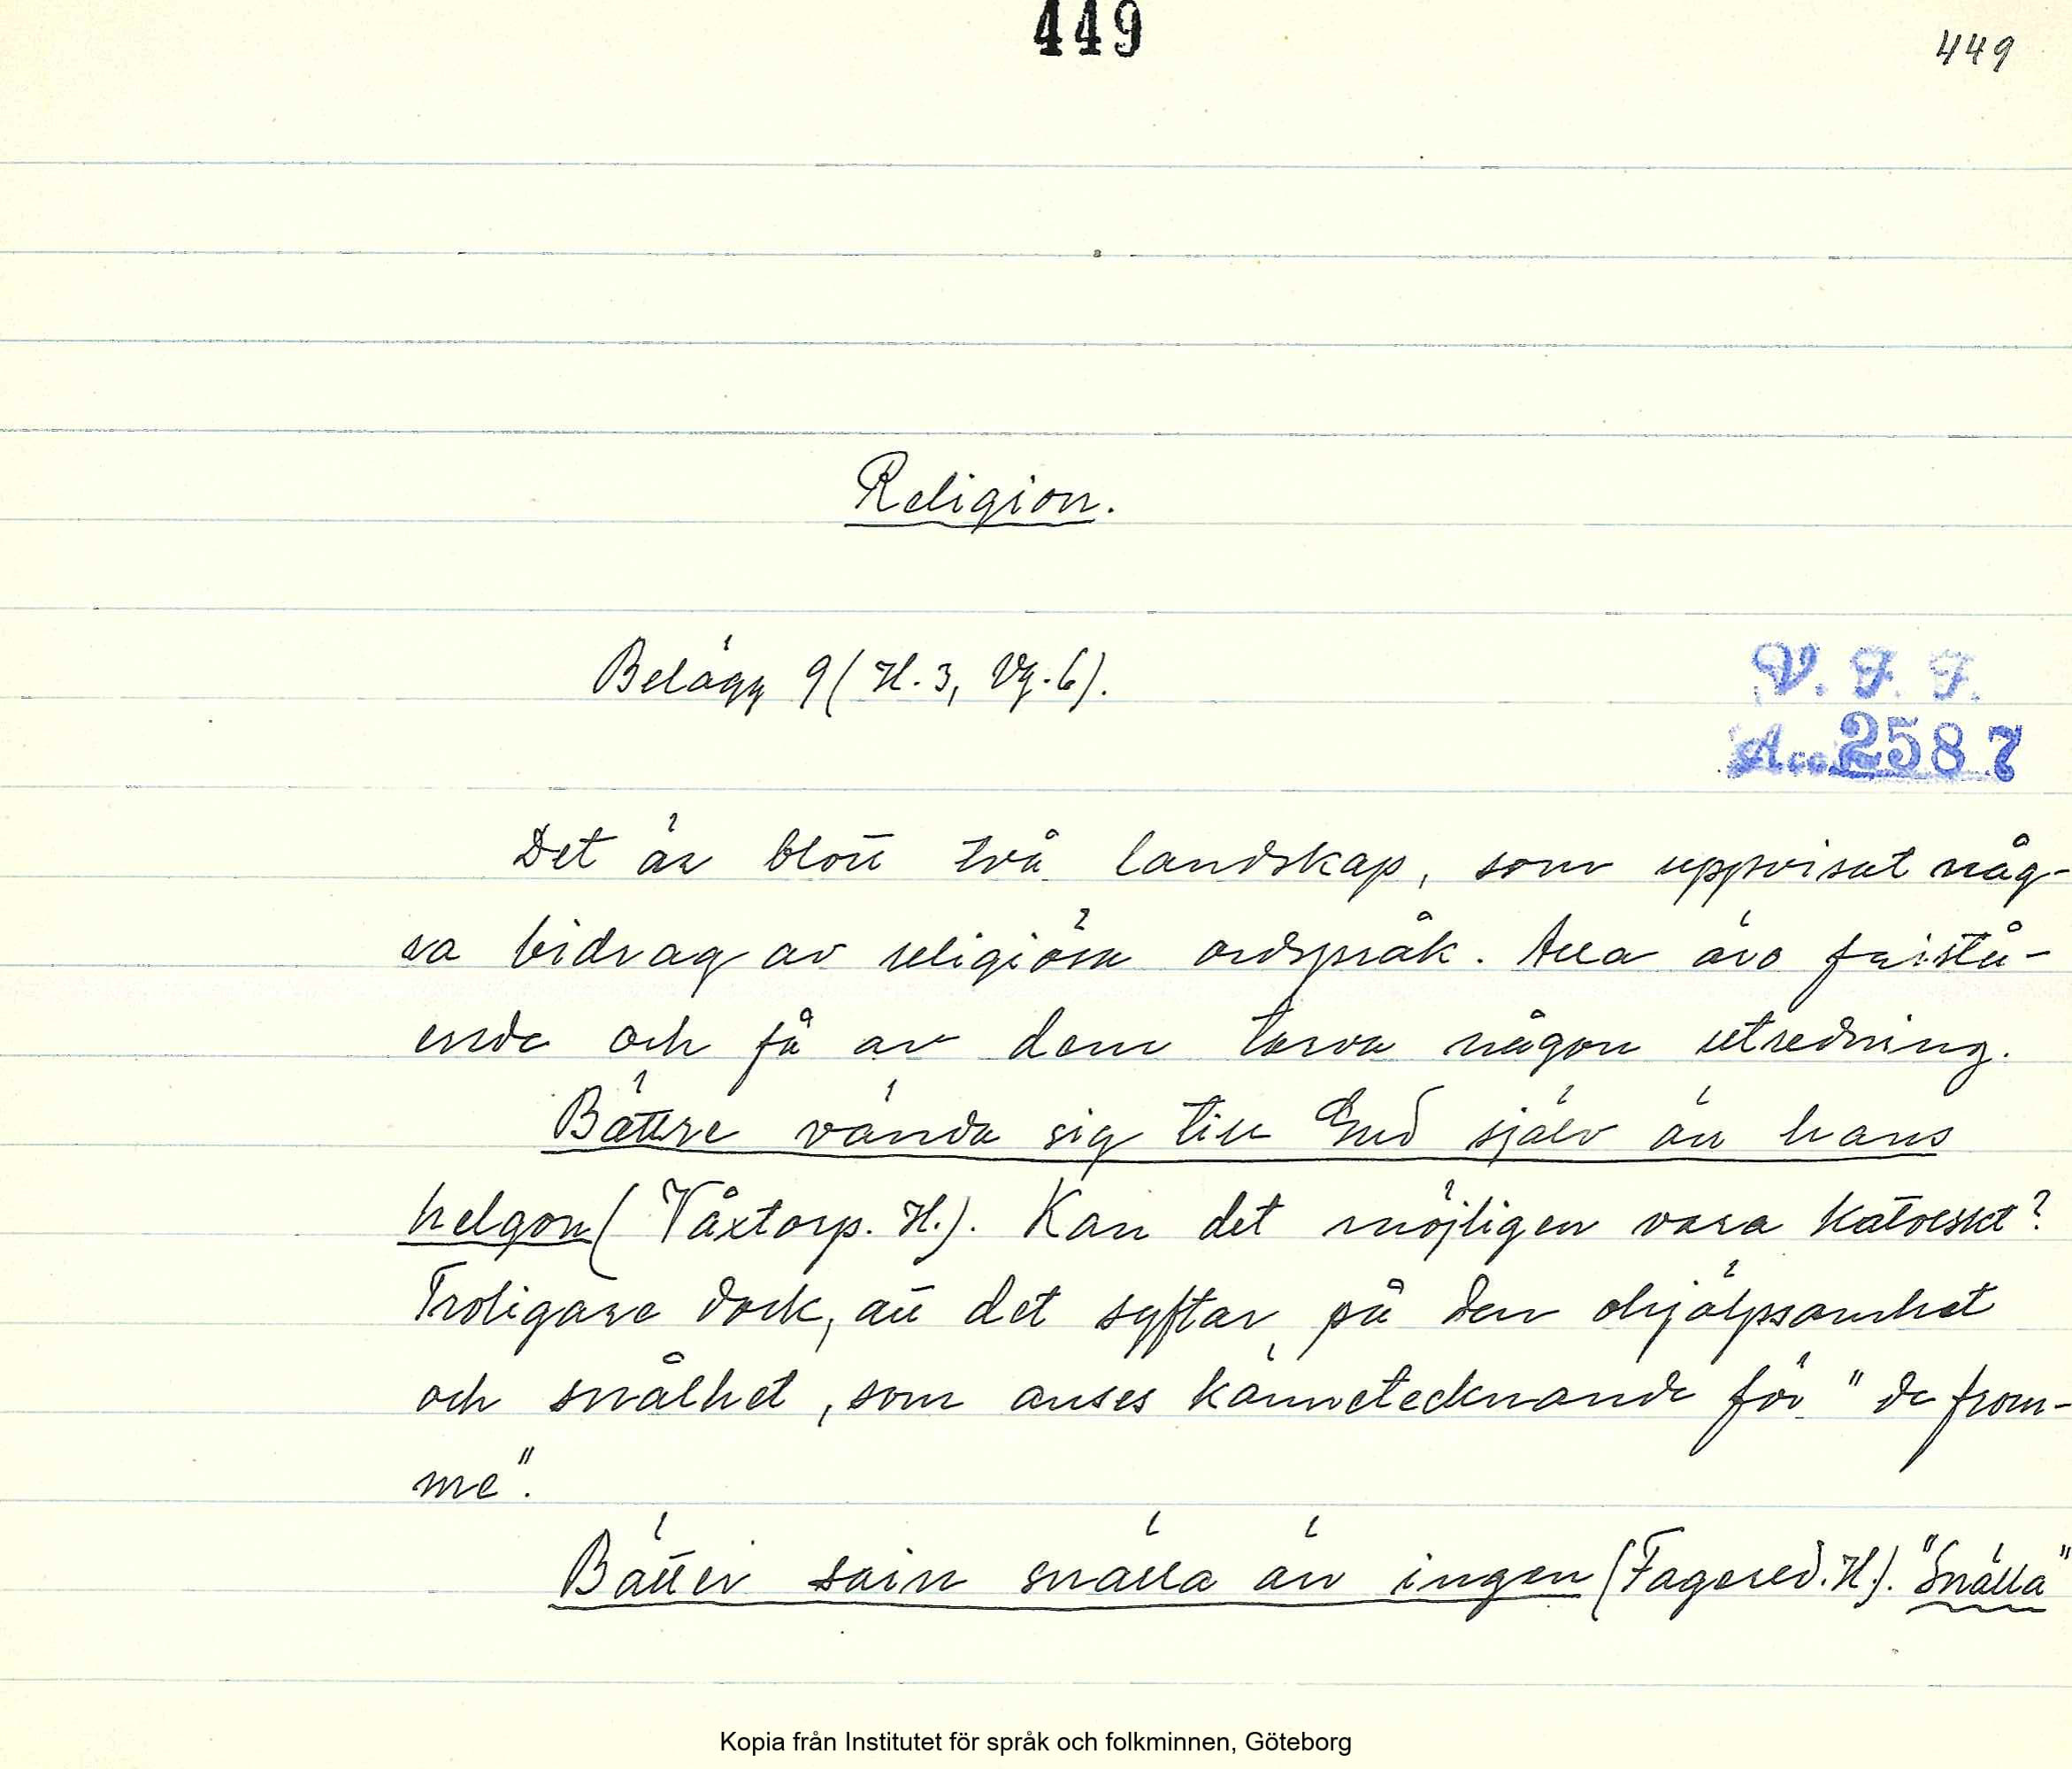 449
449
Religion.
Belägg 9 (H. 3, Vg. 6).
V. F. F.
Acc. 2587
Det är blott två landskap, som uppvisat någ-
ra bidrag av religiösa ordspråk. Alla äro fristå-
ende och få av dem tarva någon utredning.
Bättre vända sig till Gud själv än hans
helgon (Våxtorp. H.). Kan det möjligen vara katolskt?
Troligare dock, att det syftar på den ohjälpsamhet
och snålhet, som anses kännetecknande för "de from-
me".
Bätter sain snälla än ingen (Fagered. H.). "Snälla"
Kopia från Institutet för språk och folkminnen, Göteborg